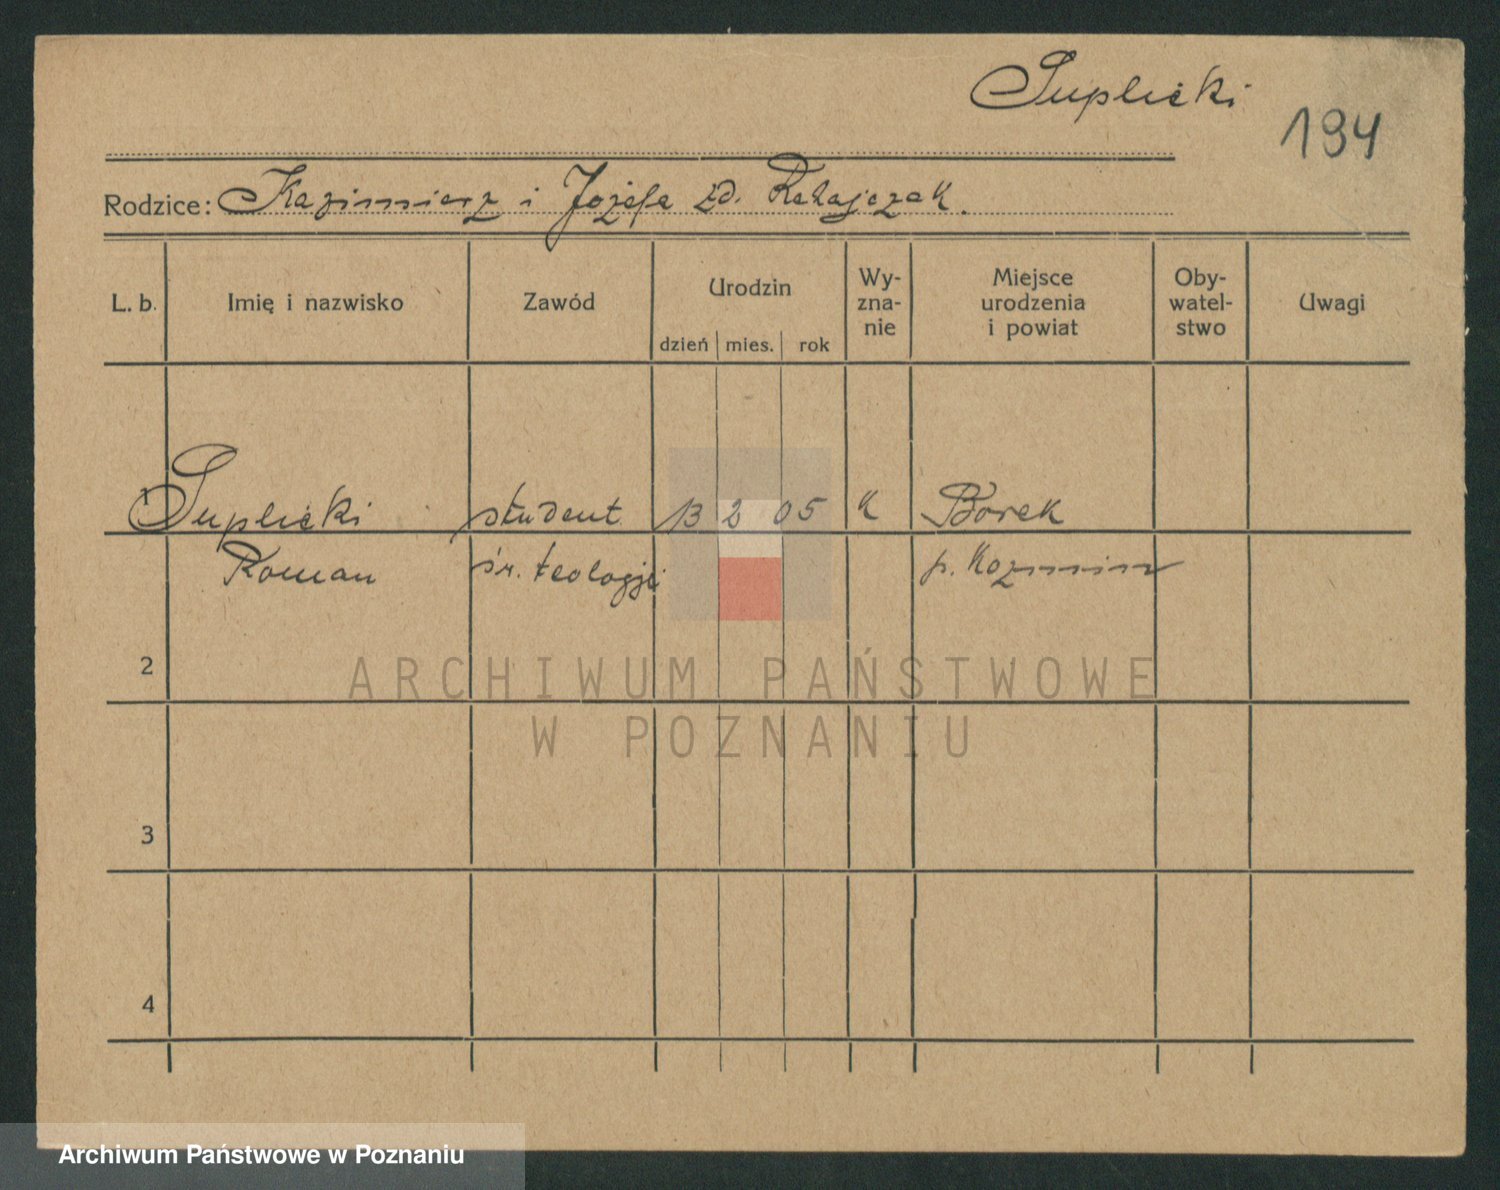 Suplicki
194
Rodzice: Kazimierz i Józefa zd. Ratajczak.
L. b. Imię i nazwisko Zawód Urodzin dzień mies. rok Wy-zna-nie Miejsce urodzenia i powiat Oby-watel-stwo Uwagi
1 Suplicki student 13 2 05 k Borek
Roman św. teologji p. Koźmin
2
ARCHIWUM PAŃSTWOWE
W POZNANIU
3
4
Archiwum Państwowe w Poznaniu